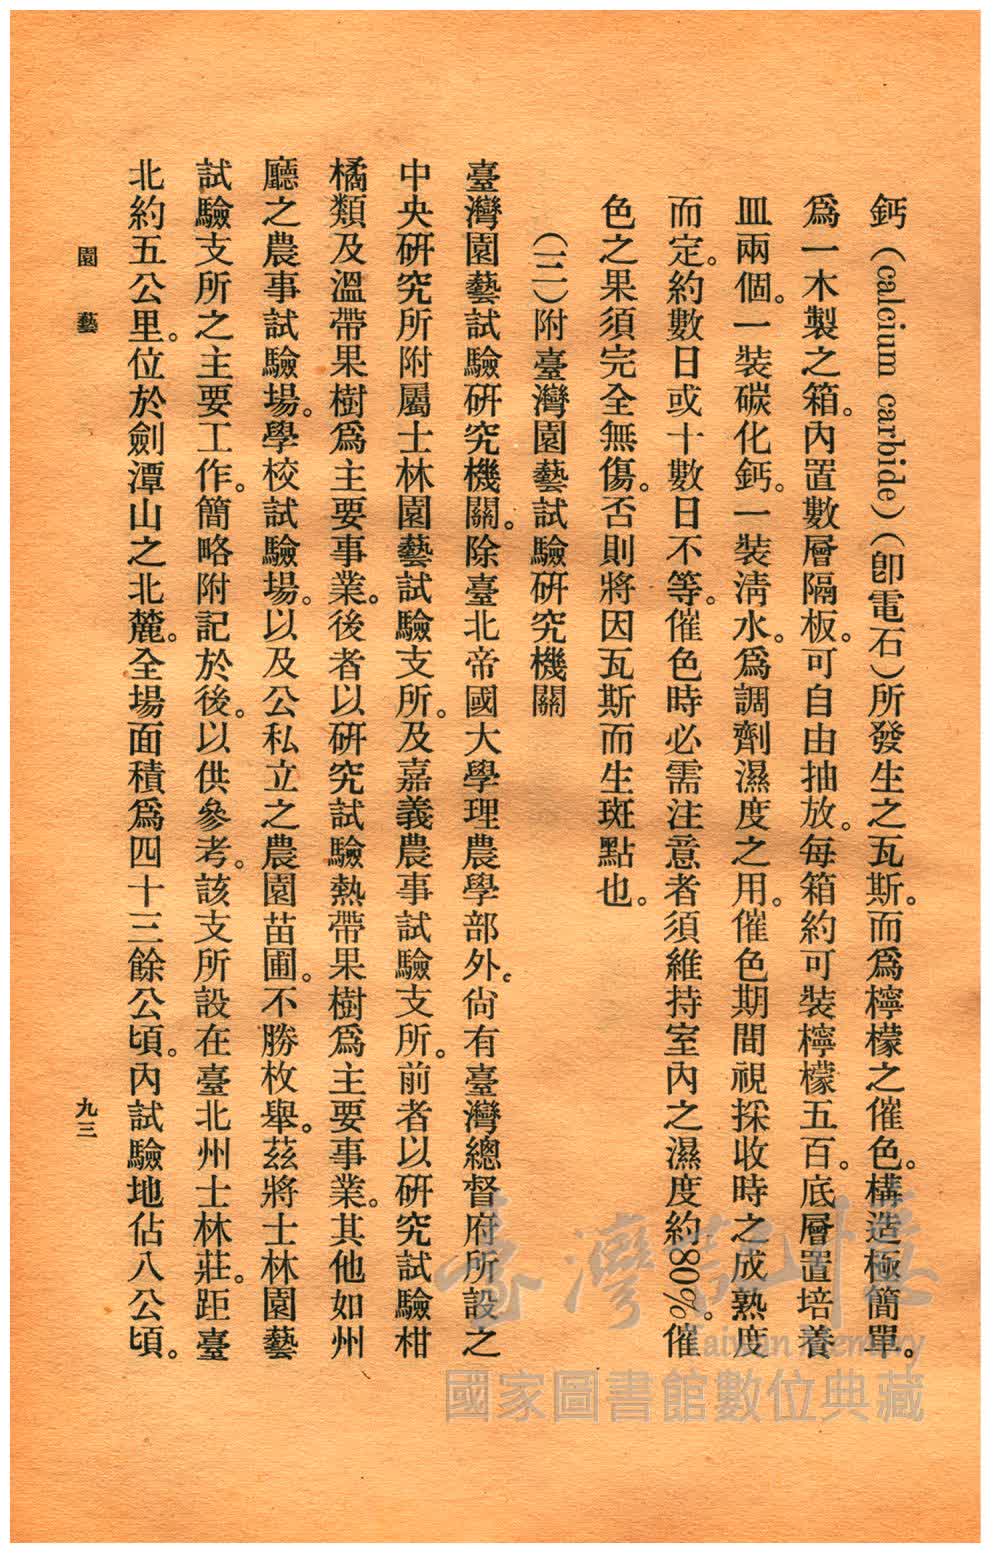 鈣(calcium carbide)(卽電石)所發生之瓦斯。而爲檸檬之催色。構造極簡單。
爲一木製之箱。內置數層隔板。可自由抽放。每箱約可裝檸檬五百。底層置培養
皿兩個。一裝碳化鈣。一裝淸水。爲調劑濕度之用。催色期間視採收時之成熟度
而定。約數日或十數日不等。催色時必需注意者須維持室內之濕度約80%。催
色之果須完全無傷。否則將因瓦斯而生斑點也。
(二)附臺灣園藝試驗硏究機關
臺灣園藝試驗硏究機關。除臺北帝國大學理農學部外。尙有臺灣總督府所設之
中央硏究所附屬士林園藝試驗支所。及嘉義農事試驗支所。前者以硏究試驗柑
橘類及溫帶果樹爲主要事業。後者以硏究試驗熱帶果樹爲主要事業。其他如州
廳之農事試驗場。學校試驗場。以及公私立之農園苗圃。不勝枚舉。茲將士林園藝
試驗支所之主要工作。簡略附記於後。以供參考。該支所設在臺北州士林莊。距臺
北約五公里。位於劍潭山之北麓。全場面積爲四十三餘公頃。內試驗地佔八公頃。
園藝
九三
臺灣記憶
Taiwan Memory
國家圖書館數位典藏